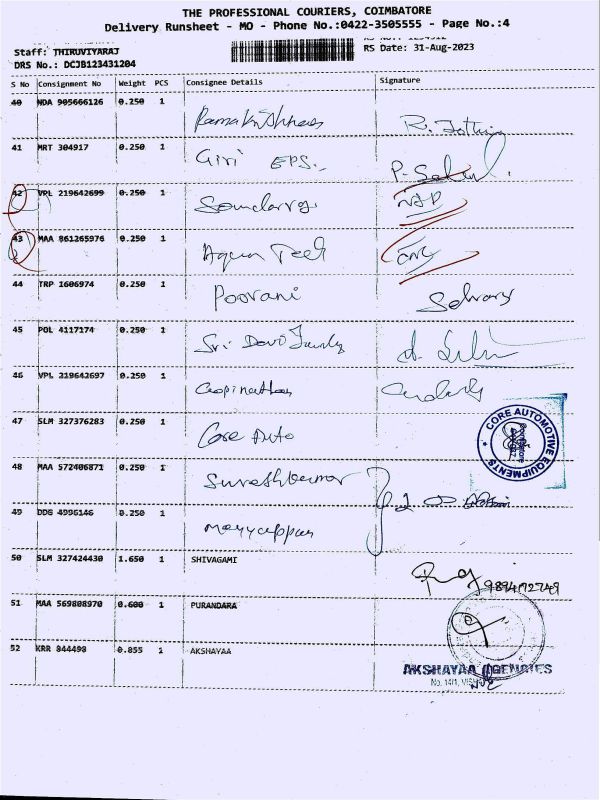 THE PROFESSIONAL COURIERS, COIMBATORE
Delivery Runsheet - MO - Phone No.:0422-3505555 - Page No.:4
Staff: THIRUVIYARAJ
RS Date: 31-Aug-2023
DRS No.: DCJB123431204
S No Consignment No Weight PCS Consignee Details Signature
40 NDA 905666126 0.250 1 Ramakrishnan
41 MRT 304917 0.250 1 Giri EPS.
42 VPL 219642699 0.250 1
43 MAA 861265976 0.250 1 Aqua Tech
44 TRP 1606974 0.250 1 Poorani Selvaraj
45 POL 4117174 0.250 1 Sri Devi Family
46 VPL 219642697 0.250 1 Gopinathan
47 SLM 327376283 0.250 1 Core Auto
CORE AUTOMOTIVE EQUIPMENTS
48 MAA 572406871 0.250 1 Sureshkumar
49 DDG 4996146 0.250 1 Meyyappan
50 SLM 327424430 1.650 1 SHIVAGAMI
51 MAA 569808970 0.600 1 PURANDARA
52 KRR 844498 0.855 1 AKSHAYAA
AKSHAYAA AGENCIES